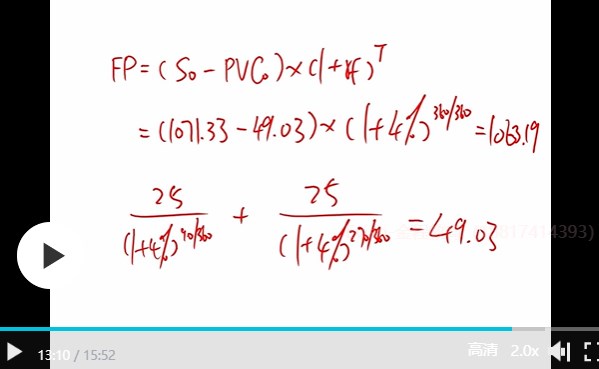 FP = (S₀ - PVC₀) × (1 + rf)ᵀ
= (1071.33 - 49.03) × (1+4%)^360/360 = 1063.19
25/(1+4%)^90/360 + 25/(1+4%)^270/360 = 49.03
13:10 / 15:52 高清 2.0x